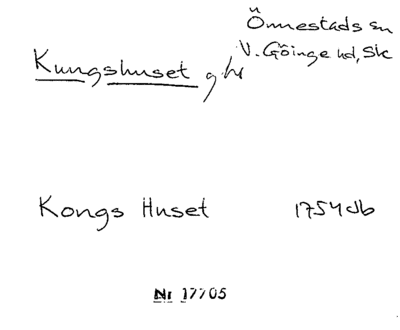 Önnestads sn
V. Göinge hd, Sk
Kungshuset
Kongs Huset 1754
Nr 17705